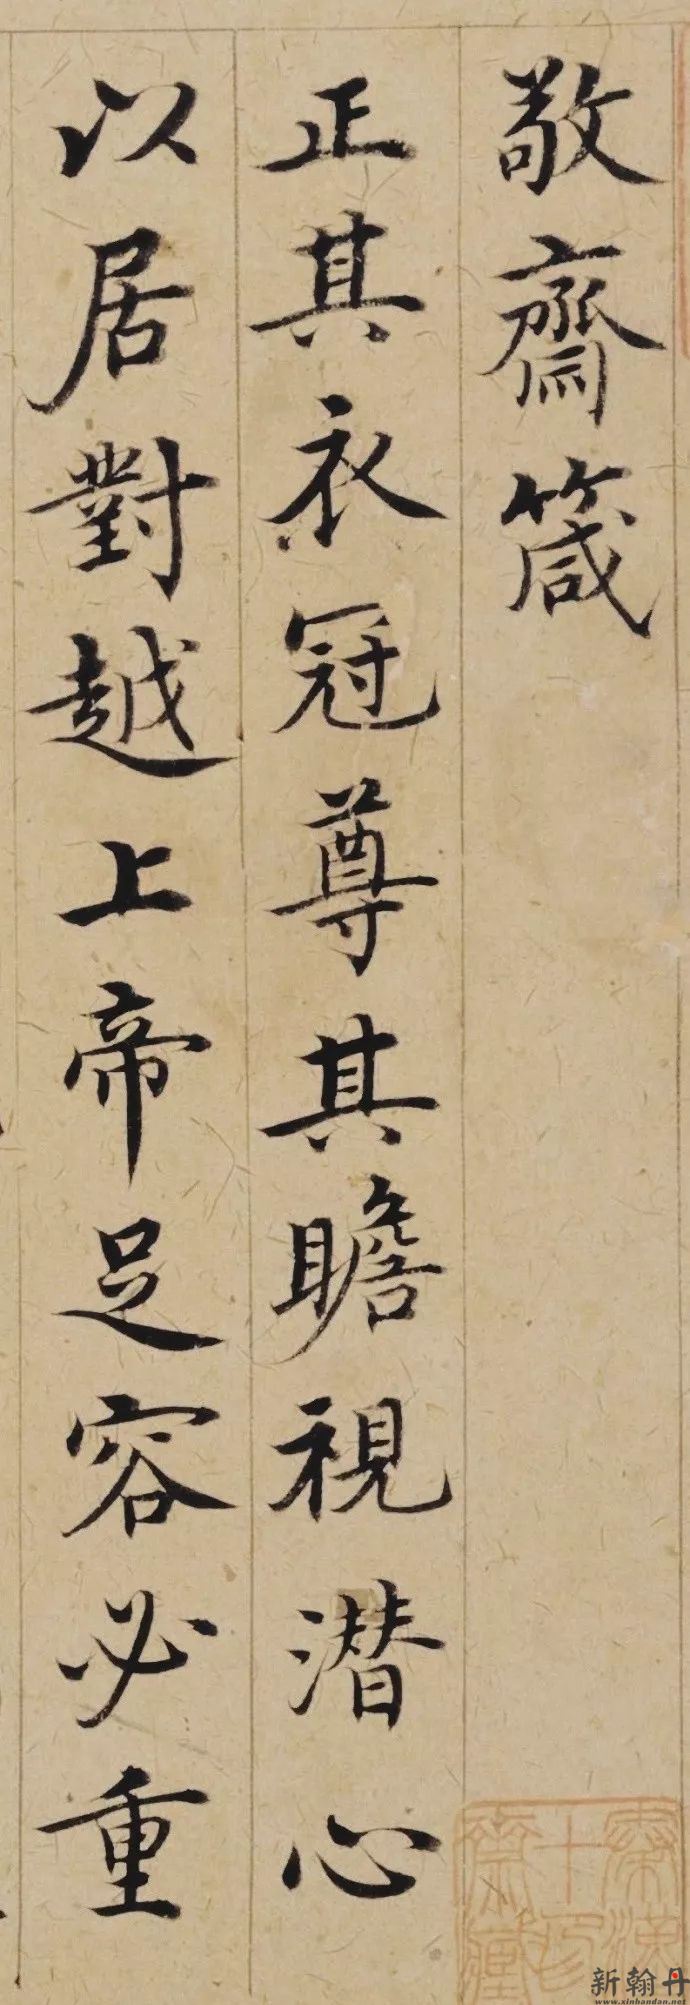 敬齋箴
正其衣冠尊其瞻視潜心
以居對越上帝足容必重
新翰丹
www.xinhandan.net